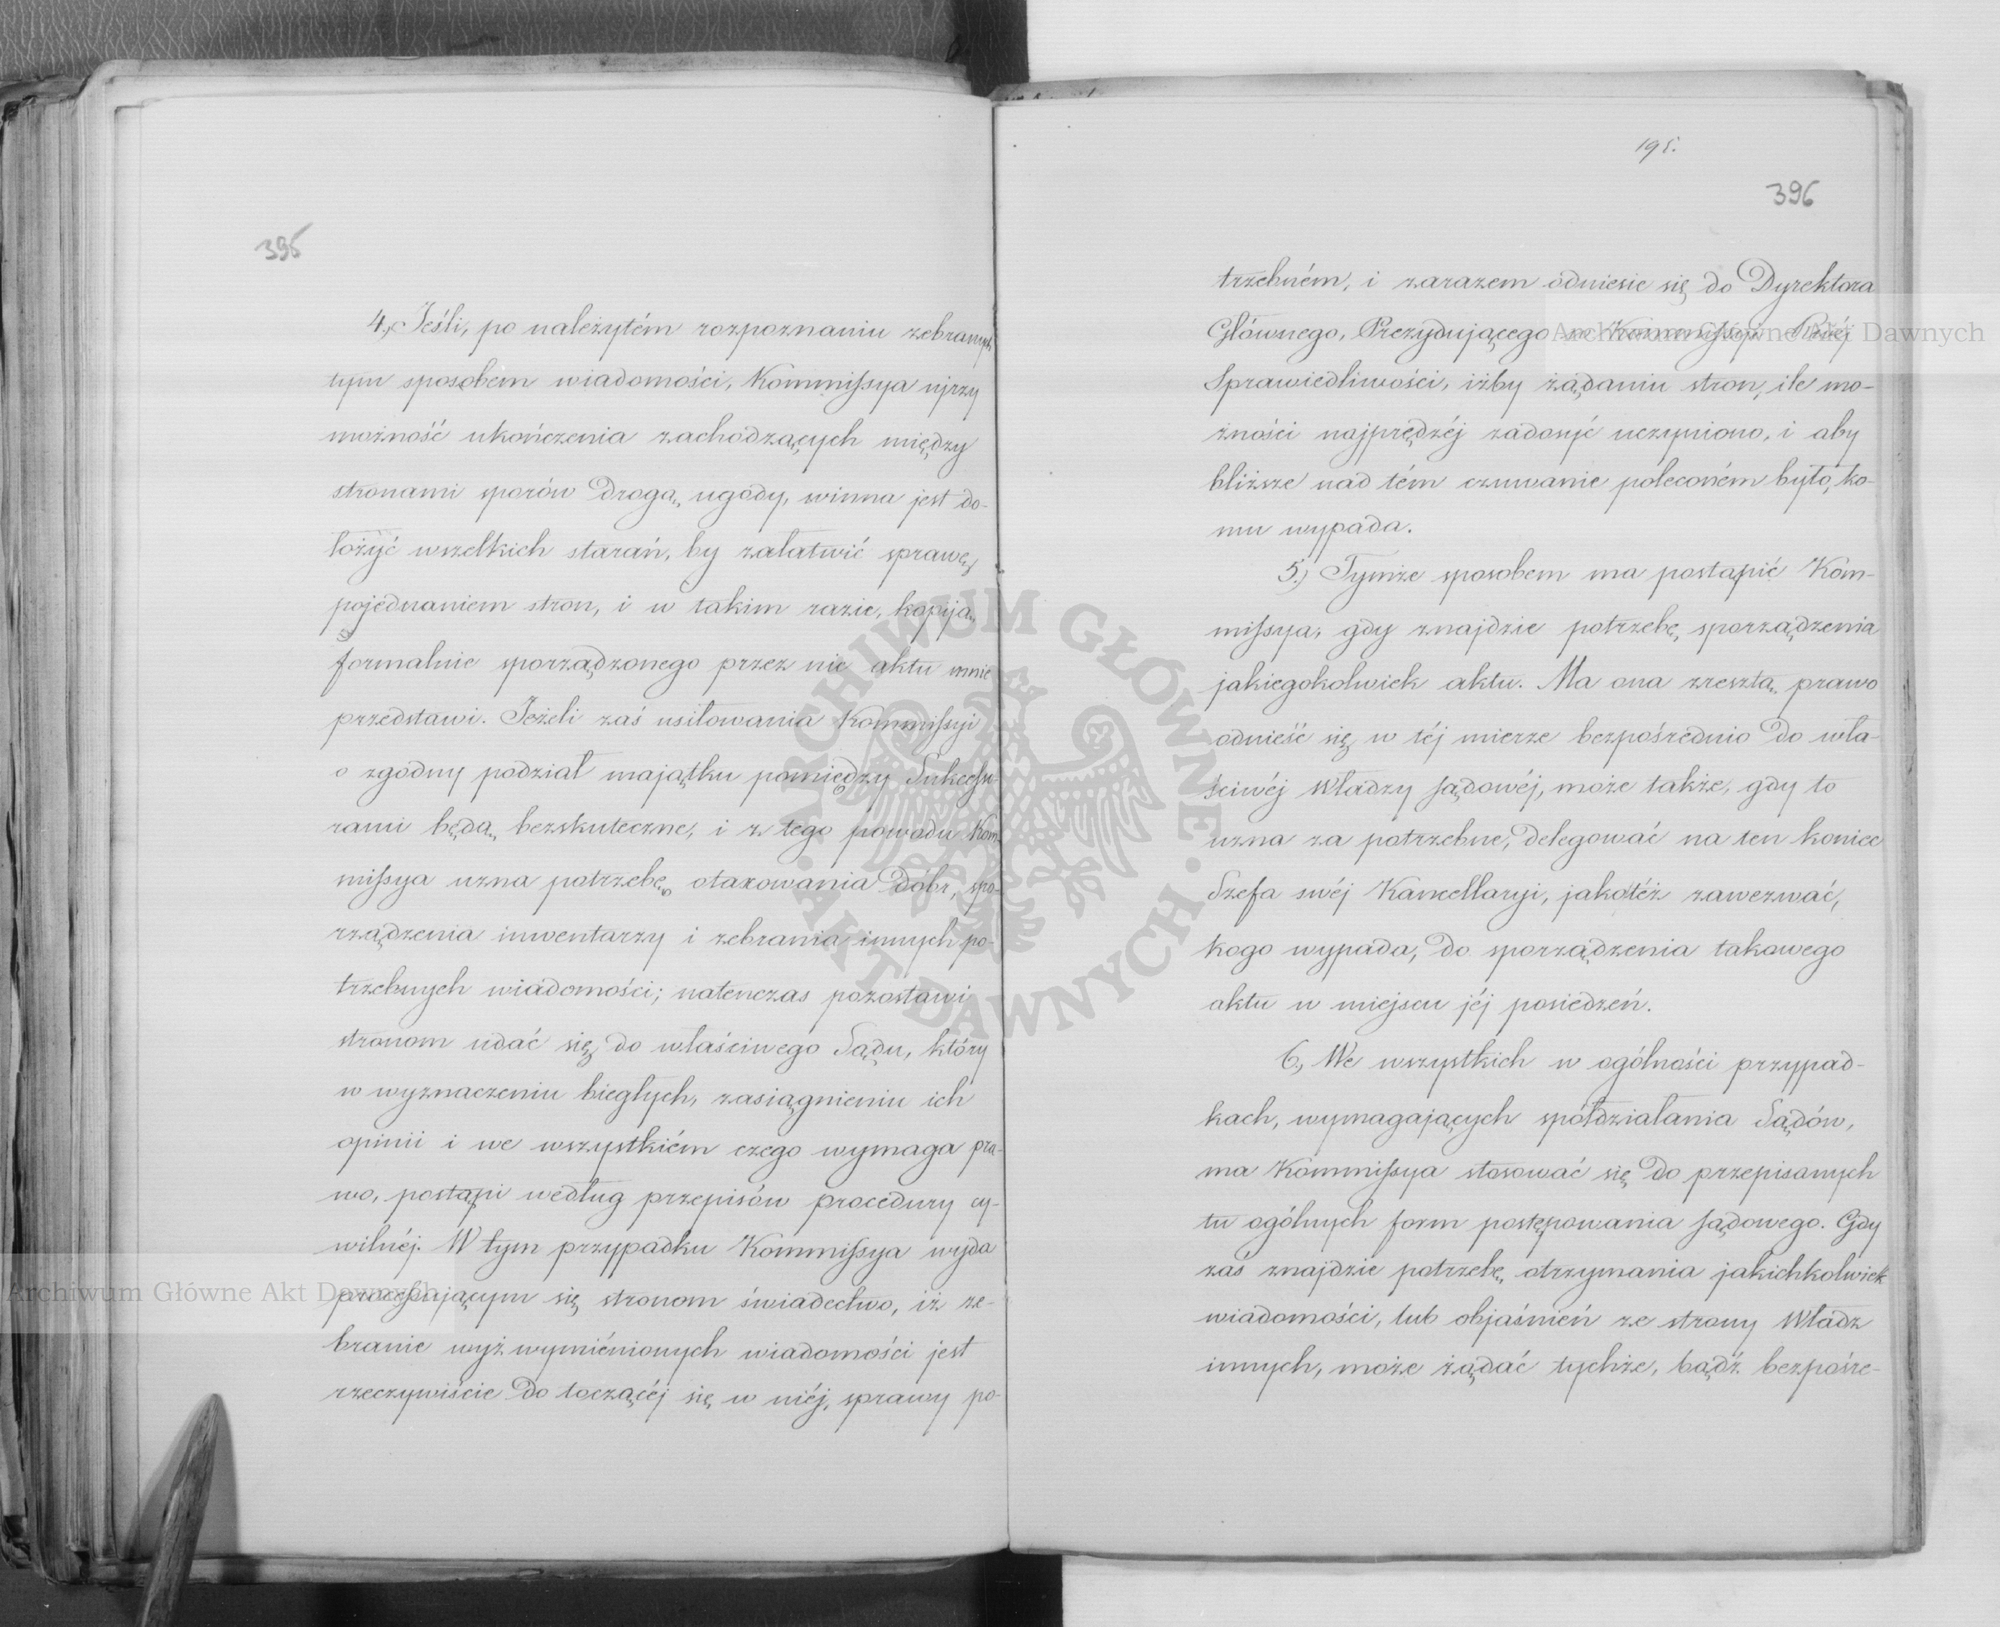 395
4., Jeśli, po należytém rozpoznaniu zebranych
tym sposobem wiadomości, Kommissya ujrzy
możność ukończenia zachodzących między
stronami sporów drogą ugody, winna jest do-
łożyć wszelkich starań, by załatwić sprawę
pojednaniem stron, i w takim razie, kopiją
formalnie sporządzonego przez nie aktu mnie
przedstawi. Jeżeli zaś usiłowania Kommissyi
o zgodny podział majątku pomiędzy Sukcesso
rami będą bezskuteczne, i z tego powodu Kom
missya uzna potrzebę otaxowania dóbr, spo-
rządzenia inwentarzy i zebrania innych po-
trzebnych wiadomości; natenczas pozostawi
stronom udać się do właściwego Sądu, który
w wyznaczeniu biegłych, zasiągnieniu ich
opinii i we wszystkiém czego wymaga pra-
wo, postąpi według przepisów procedury cy-
wilnéj. W tym przypadku Kommissya wyda
processującym się stronom świadectwo, iż ze-
branie wyż wymiénionych wiadomości jest
rzeczywiście do toczącéj się w niéj, sprawy po-
195.
396
trzebném, i zarazem odniesie się do Dyrektora
Głównego, Prezydującego w Kommissyi Rz̃ąd̃éj
Sprawiedliwości, iżby żądaniu stron, ile mo-
żności najprędzéj zadosyć uczyniono, i aby
bliższe nad tém czuwanie poleconém było, ko-
mu wypada.
5.) Tymże sposobem ma postąpić Kom-
missya, gdy znajdzie potrzebę sporządzenia
jakiegokolwiek aktu. Ma ona zresztą prawo
odnieść się w téj mierze bezpośrednio do wła-
ściwéj Władzy sądowéj, może także, gdy to
uzna za potrzebne, delegować na ten koniec
Szefa swéj Kancellaryi, jakotéż zawezwać,
kogo wypada, do sporządzenia takowego
aktu w miejscu jéj posiedzeń.
6., We wszystkich w ogólności przypad-
kach, wymagających spółdziałania Sądów,
ma Kommissya stosować się do przepisanych
tu ogólnych form postępowania sądowego. Gdy
zaś znajdzie potrzebę otrzymania jakichkolwiek
wiadomości, lub objaśnień ze strony Władz
innych, może żądać tychże, bądź bezpośre-
Archiwum Główne Akt Dawnych
Archiwum Główne Akt Dawnych
ARCHIWUM GŁÓWNE · AKT DAWNYCH ·